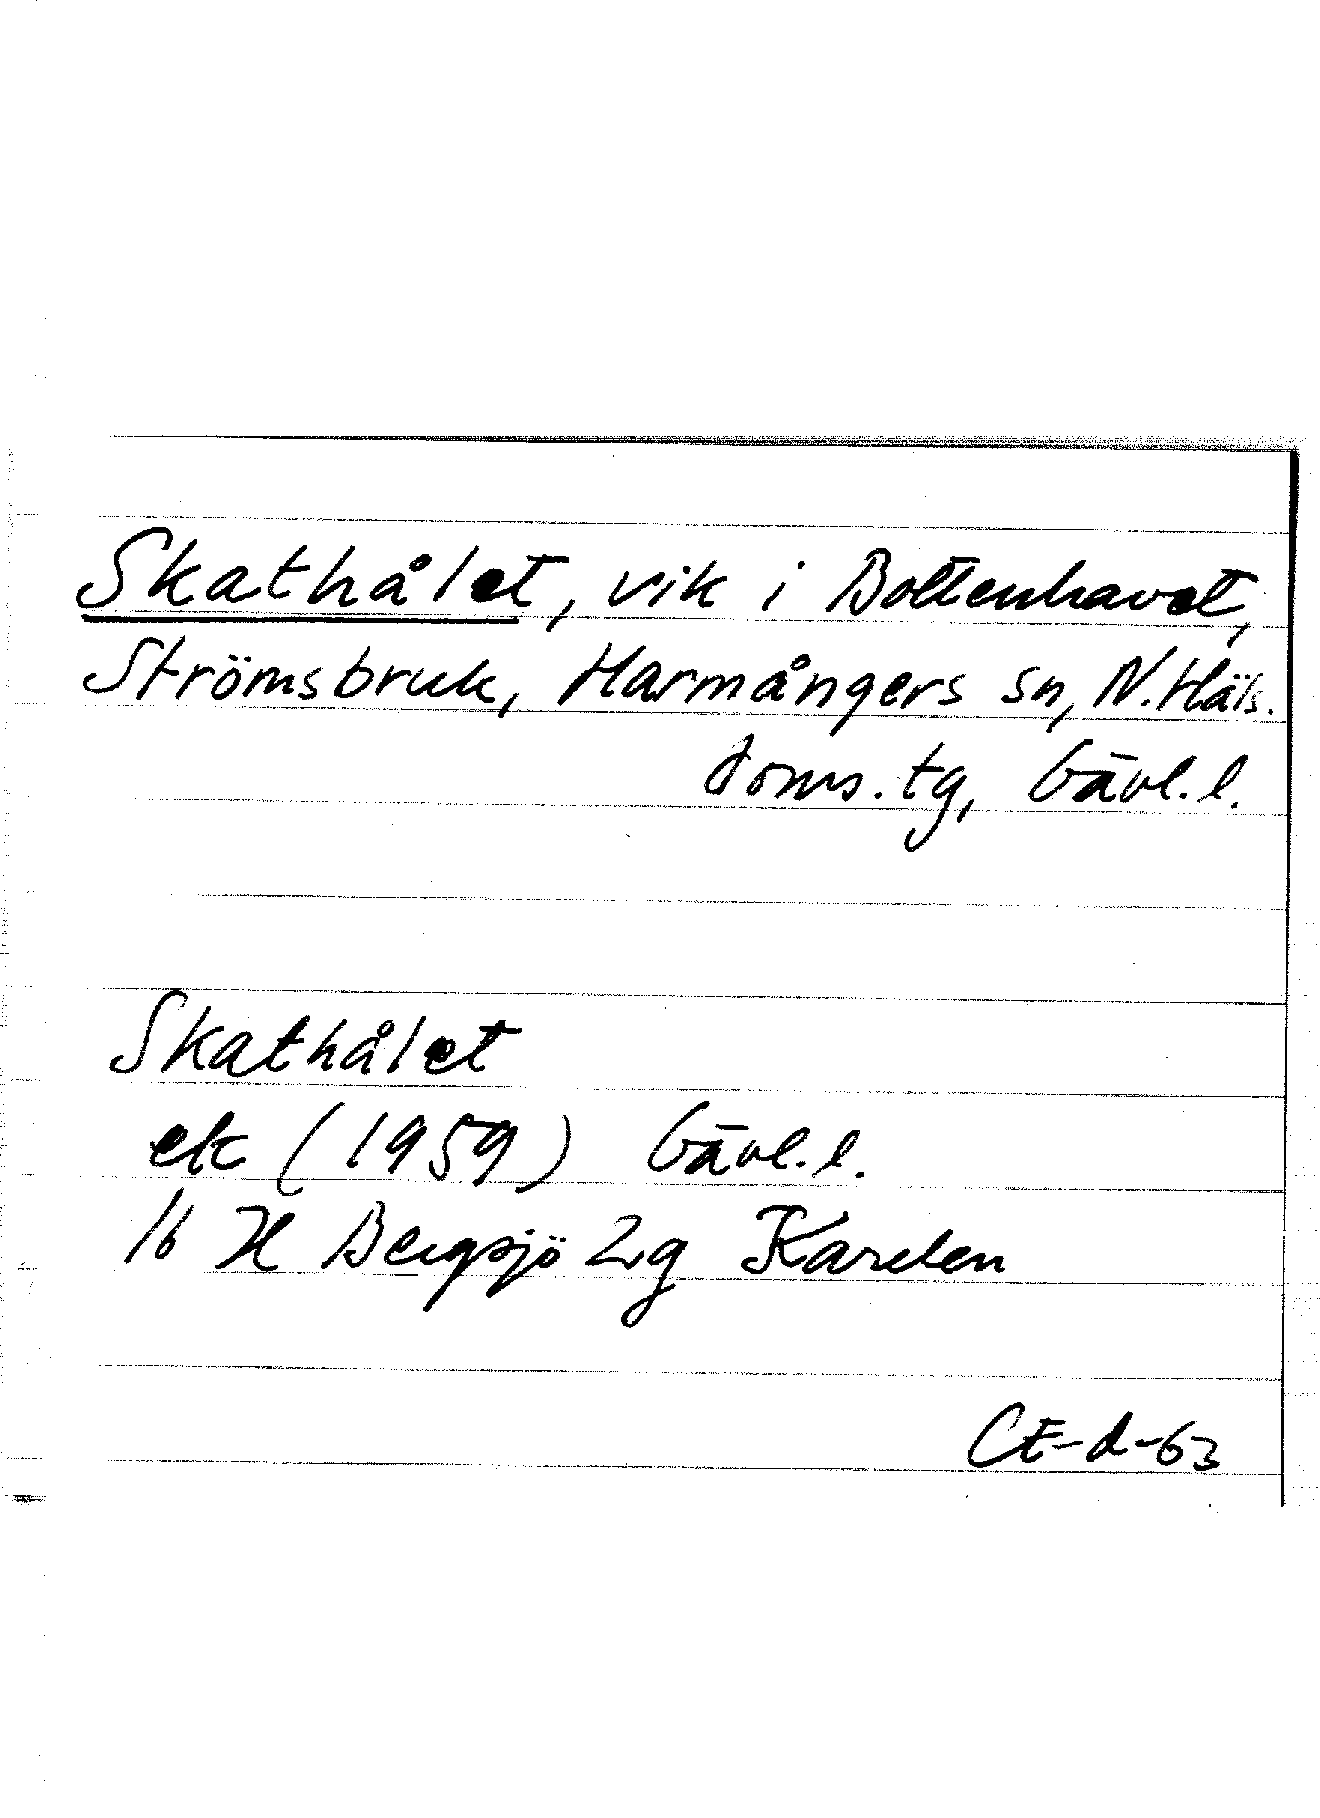 Skathålet, vik i Bottenhavet,
Strömsbruk, Harmångers sn, N. Häls.
doms. tg, Gävl. l.
Skathålet
ek (1959) Gävl. l.
16 H Bergsjö 2g Karelen
CE-d-63